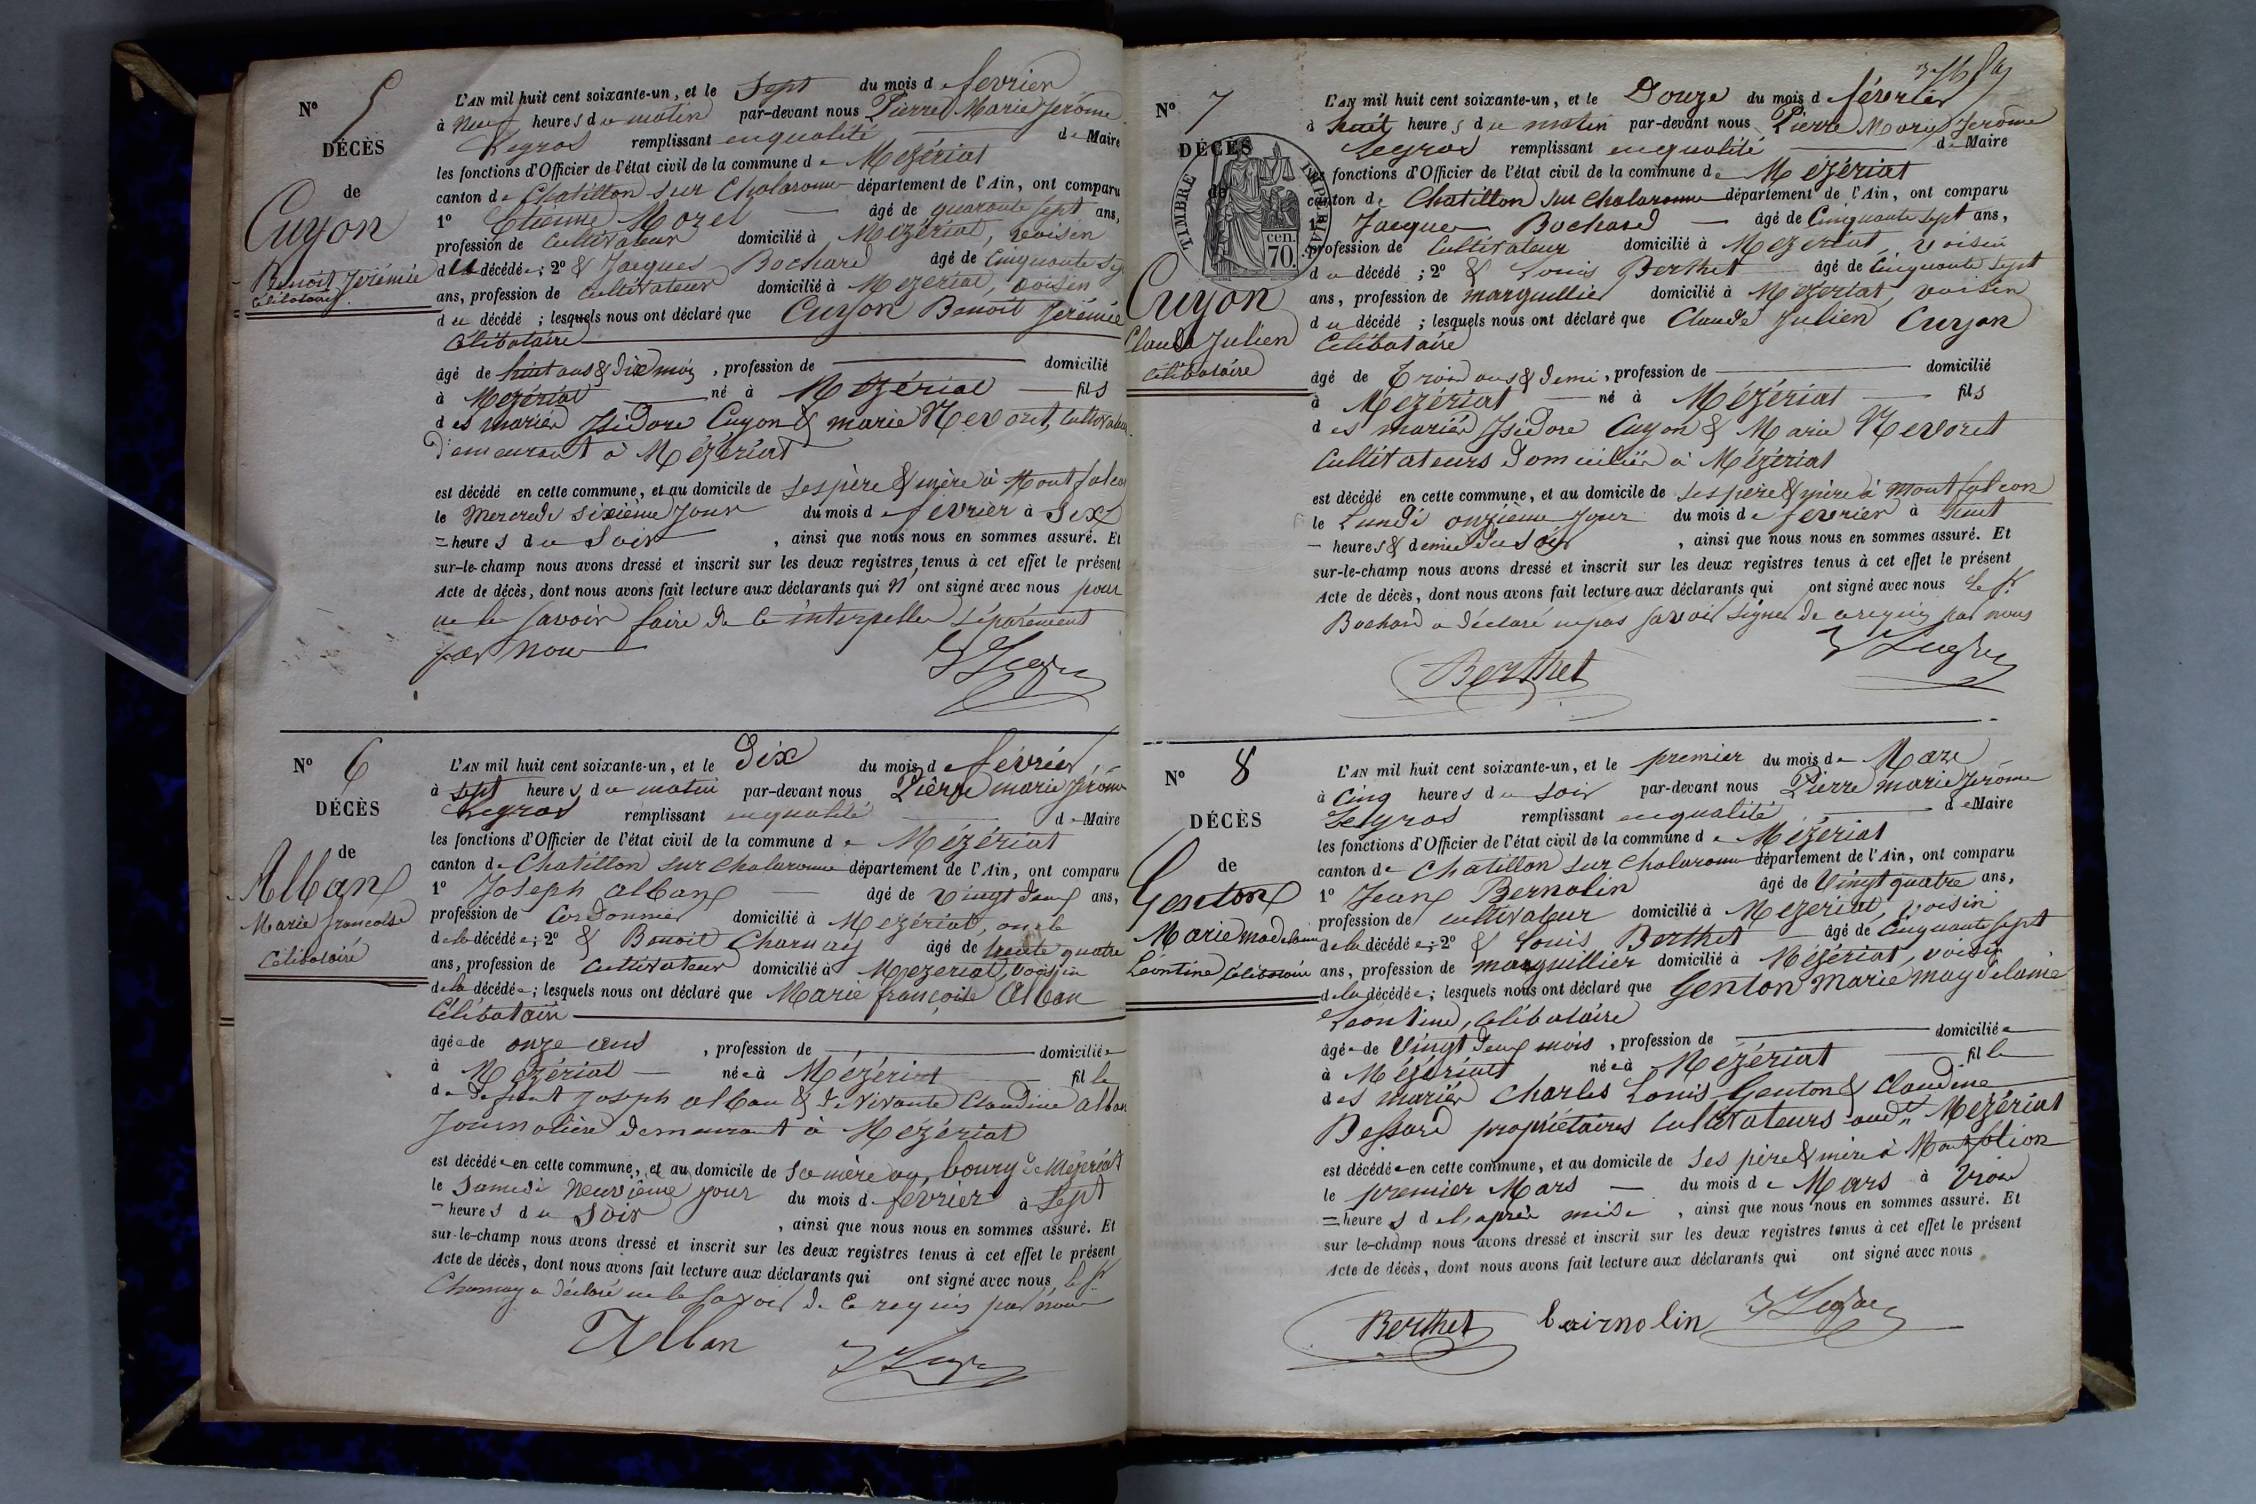 N° 5
DÉCÈS
de
Cuyon
Benoit Jérémie
Célibataire
L'AN mil huit cent soixante-un, et le Sept du mois de fevrier
à Neuf heures du matin par-devant nous Pierre Marie Jerôme
Legros remplissant en qualité de Maire
les fonctions d'Officier de l'état civil de la commune de Mezériat
canton de Chatillon sur Chalaronne département de l'Ain, ont comparu
1° Etienne Morel âgé de quarante sept ans,
profession de Cultivateur domicilié à Mezériat, voisin
du décédé; 2° & Jacques Bochard âgé de Cinquante Sept
ans, profession de cultivateur domicilié à Mezeriat, voisin
du décédé ; lesquels nous ont déclaré que Cuyon Benoit Jérémie
Célibataire
âgé de huit ans & dix mois, profession de domicilié
à Mezériat né à Mezériat fils
des mariés Isidore Cuyon & marie Nevoret, Cultivateurs
demeurant à Mézériat
est décédé en cette commune, et au domicile de ses père & mère à Montfalcon
le Mercredi sixième jour du mois de fevrier à Six
= heures du Soir, ainsi que nous nous en sommes assuré. Et
sur-le-champ nous avons dressé et inscrit sur les deux registres tenus à cet effet le présent
Acte de décès, dont nous avons fait lecture aux déclarants qui n'ont signé avec nous pour
ne le savoir faire de ce interpellés séparément
par nous
Legros
N° 6
DÉCÈS
de
Alban
Marie francoise
Célibataire
L'AN mil huit cent soixante-un, et le Dix du mois de février
à sept heures du matin par-devant nous Pierre marie Jérôme
Legros remplissant en qualité de Maire
les fonctions d'Officier de l'état civil de la commune de Mézériat
canton de Chatillon sur Chalaronne département de l'Ain, ont comparu
1° Joseph alban âgé de vingt deux ans,
profession de Cordonnier domicilié à Mezériat, oncle
de la décédée; 2° & Benoit Charnay âgé de trente quatre
ans, profession de Cultivateur domicilié à Mezeriat, voisin
de la décédée; lesquels nous ont déclaré que Marie françoise Alban
Célibataire
âgée de onze ans, profession de domiciliée
à Mezériat née à Mézériat fille
de defunt Joseph alban & de vivante Claudine alban
Journalière demeurant à Mezériat
est décédée en cette commune, et au domicile de sa mère au bourg de Mezériat
le Samedi Neuvième jour du mois de fevrier à Sept
= heures du Soir, ainsi que nous nous en sommes assuré. Et
sur-le-champ nous avons dressé et inscrit sur les deux registres tenus à cet effet le présent
Acte de décès, dont nous avons fait lecture aux déclarants qui ont signé avec nous le sr
Charnay a déclaré ne le savoir de ce requis par nous
Alban Legros
N° 7
DÉCÈS
de
TIMBRE IMPERIAL
cen. 70.
Cuyon
Claude Julien
Célibataire
L'AN mil huit cent soixante-un, et le Douze du mois de février
à huit heures du matin par-devant nous Pierre Marie Jerôme
Legros remplissant en qualité de Maire
les fonctions d'Officier de l'état civil de la commune de Mézériat
canton de Chatillon sur Chalaronne département de l'Ain, ont comparu
1° Jacques Bochard âgé de Cinquante sept ans,
profession de Cultivateur domicilié à Mezériat, voisin
du décédé ; 2° & Louis Berthet âgé de Cinquante sept
ans, profession de marguillier domicilié à Mezeriat, voisin
du décédé ; lesquels nous ont déclaré que Claude Julien Cuyon
Célibataire
âgé de Trois ans & demi, profession de domicilié
à Mézériat né à Mézériat fils
des mariés Isidore Cuyon & Marie Nevoret
Cultivateurs domiciliés à Mézériat
est décédé en cette commune, et au domicile de ses père & mère à Montfalcon
le Lundi onzième jour du mois de fevrier à huit
- heures & demie du soir, ainsi que nous nous en sommes assuré. Et
sur-le-champ nous avons dressé et inscrit sur les deux registres tenus à cet effet le présent
Acte de décès, dont nous avons fait lecture aux déclarants qui ont signé avec nous le sr
Bochard a déclaré ne pas savoir signer de ce requis par nous
Berthet Legros
N° 8
DÉCÈS
de
Genton
Marie madelaine
Léontine Célibataire
L'AN mil huit cent soixante-un, et le premier du mois de Mars
à Cinq heures du soir par-devant nous Pierre marie Jerôme
Legros remplissant en qualité de Maire
les fonctions d'Officier de l'état civil de la commune de Mézériat
canton de Chatillon sur Chalaronne département de l'Ain, ont comparu
1° Jean Bernolin âgé de Vingt quatre ans,
profession de cultivateur domicilié à Mezeriat, voisin
de la décédée; 2° & Louis Berthet âgé de Cinquante sept
ans, profession de marguillier domicilié à Mézériat, voisin
de la décédée; lesquels nous ont déclaré que Genton Marie magdelaine
Léontine, Célibataire
âgée de Vingt deux mois, profession de domiciliée
à Mézériat née à Mézériat fille
des mariés Charles Louis Genton & Claudine
Bessard propriétaires cultivateurs audt Mezériat
est décédée en cette commune, et au domicile de ses père & mère à
le premier Mars du mois de Mars à trois
= heures de l'après midi, ainsi que nous nous en sommes assuré. Et
sur le-champ nous avons dressé et inscrit sur les deux registres tenus à cet effet le présent
Acte de décès, dont nous avons fait lecture aux déclarants qui ont signé avec nous
Berthet bairnolin Legros